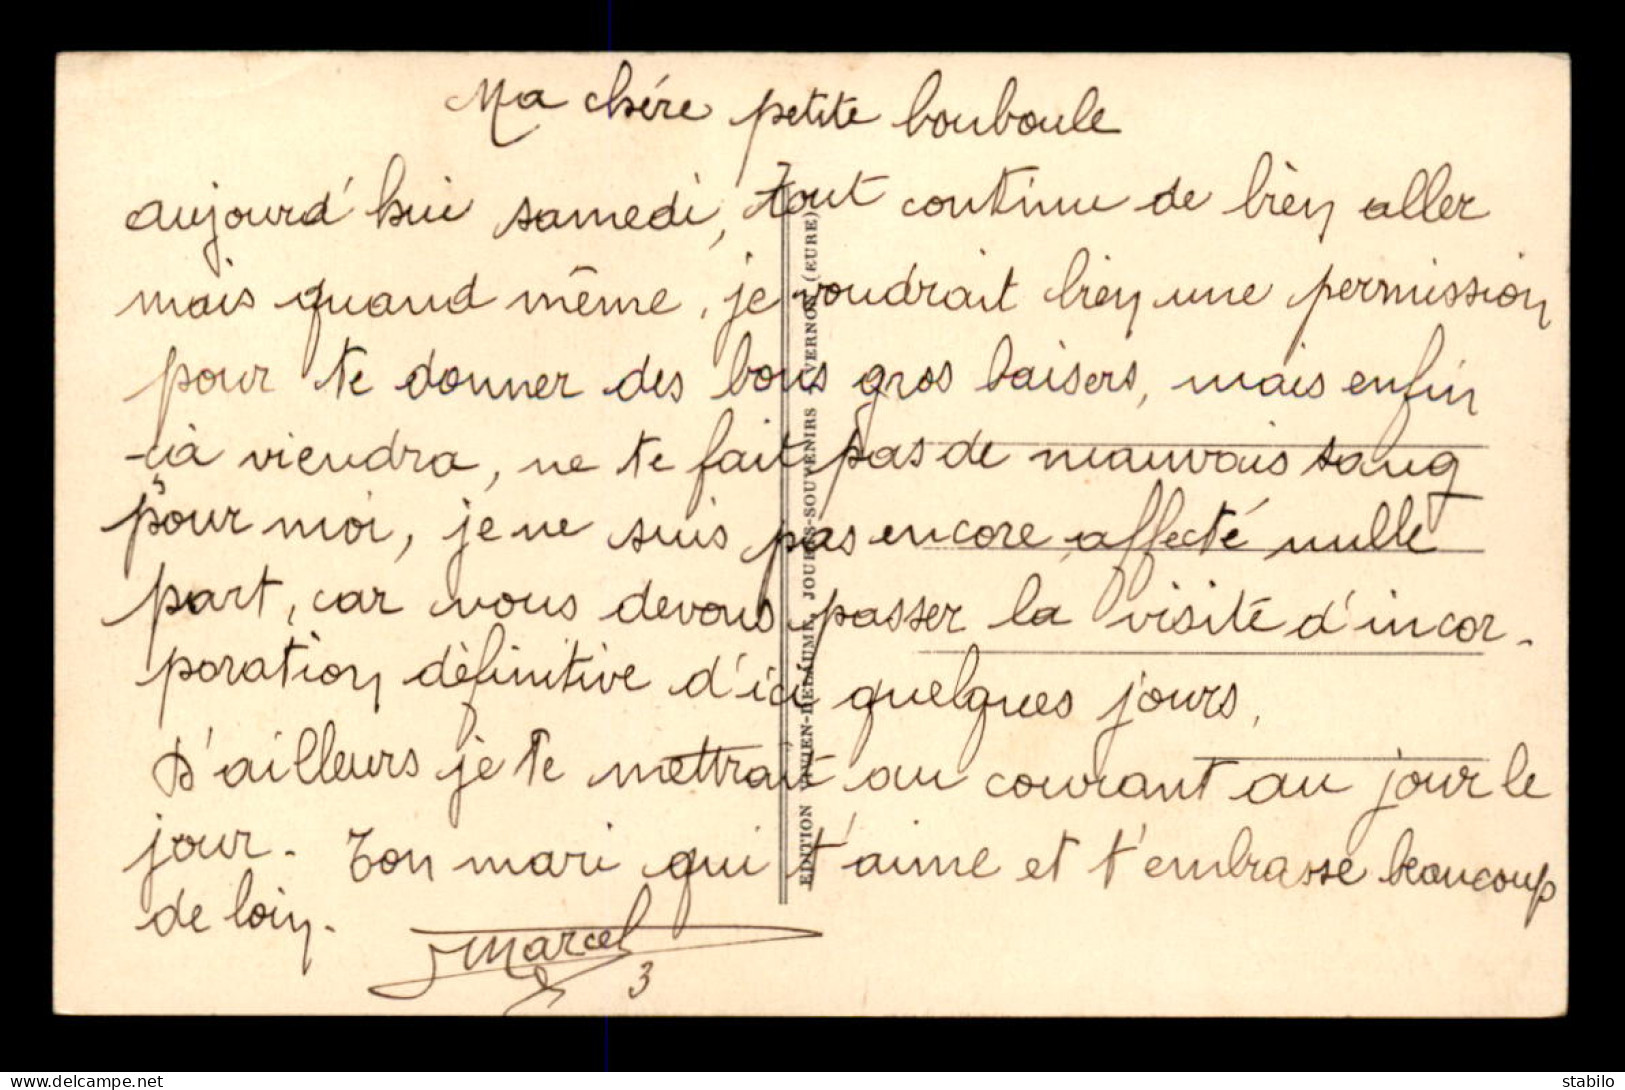 Ma chère petite bouboule
aujourd'hui samedi, tout continue de bien aller
mais quand même, je voudrait bien une permission
pour te donner des bons gros baisers, mais enfin
ça viendra, ne te fait pas de mauvais sang
pour moi, je ne suis pas encore affecté nulle
part, car nous devons passer la visite d'incor-
poration définitive d'ici quelques jours.
D'ailleurs je te mettrait au courant au jour le
jour. Ton mari qui t'aime et t'embrasse beaucoup
de loin.
Marcel
3
EDITION VIVIEN-DELAUME, JOURES-SOUVENIRS - VERNON (EURE)
delcampe.net
stabilo